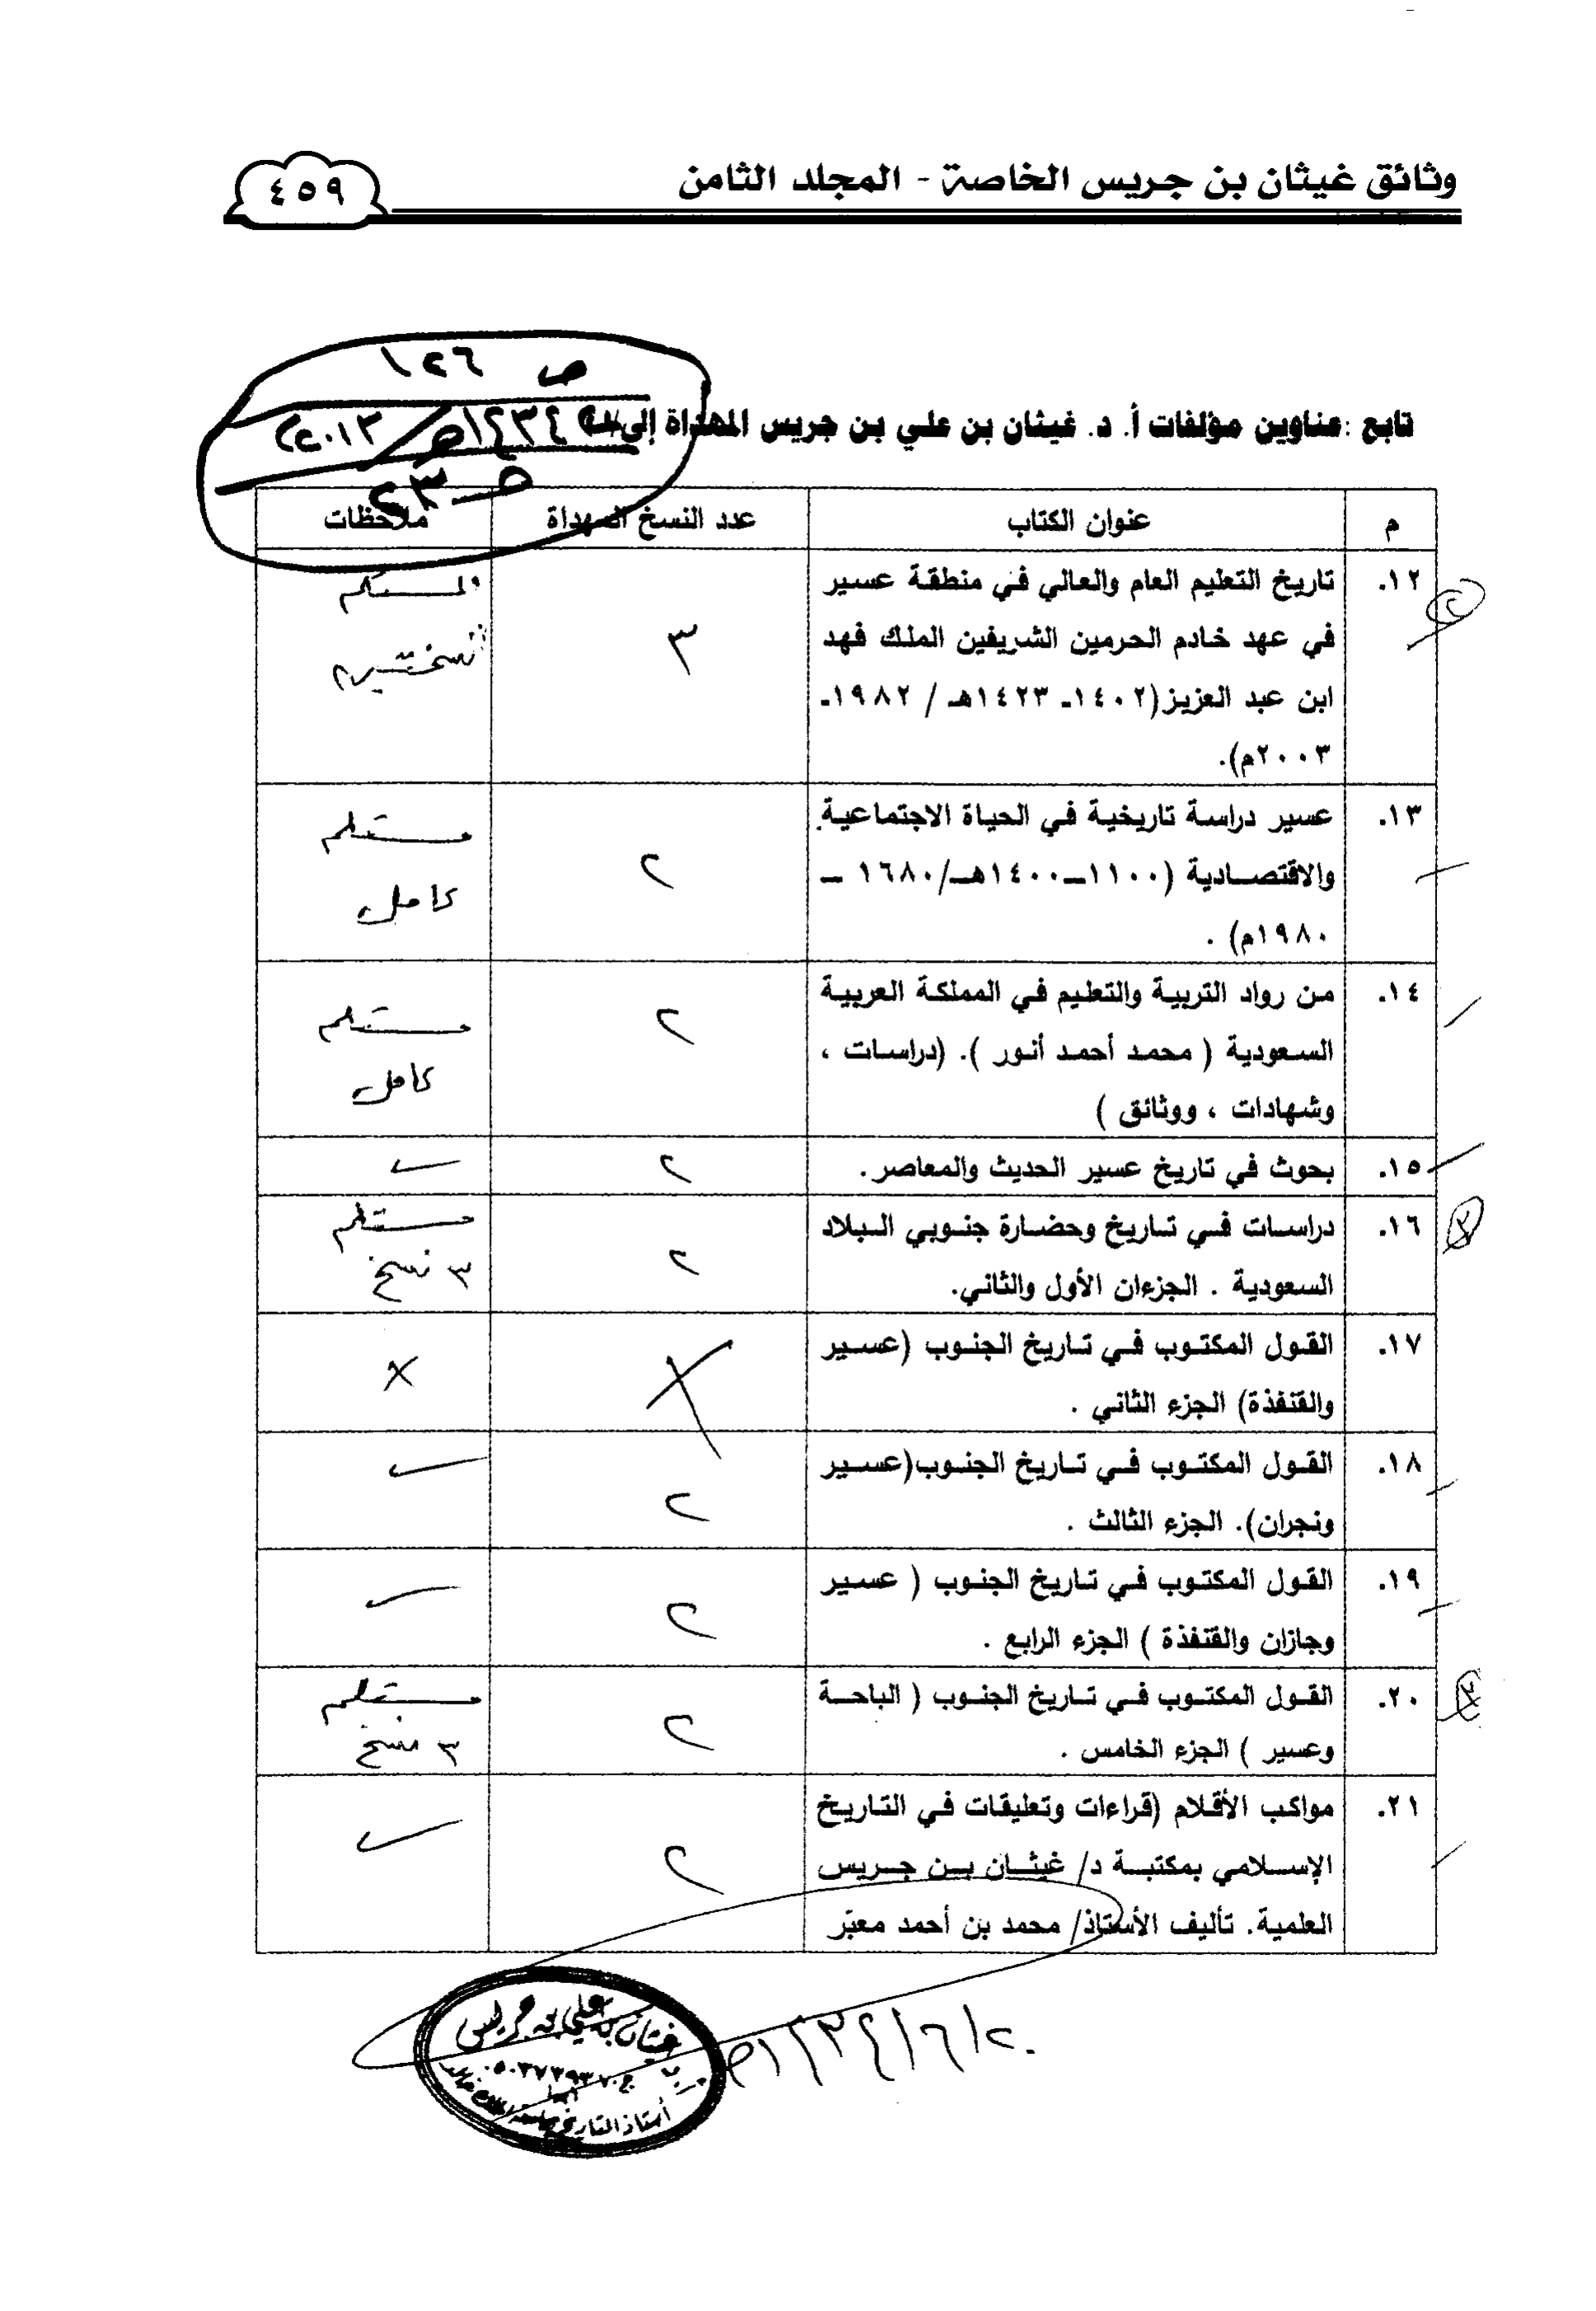 وثائق غيثان بن جريس الخاصة - المجلد الثامن
٤٥٩
ص ١٢٦
١٤٣٤هـ / ٢٠١٣م
ص ٢٣
تابع :عناوين مؤلفات أ. د. غيثان بن علي بن جريس المهداة إلى
م عنوان الكتاب عدد النسخ المهداة ملاحظات
١٢. تاريخ التعليم العام والعالي في منطقة عسير
في عهد خادم الحرمين الشريفين الملك فهد
ابن عبد العزيز(١٤٠٢ـ ١٤٢٣هـ / ١٩٨٢ـ
٢٠٠٣م).
٣
المستلم
نسختين
١٣. عسير دراسة تاريخية في الحياة الاجتماعية
والاقتصادية (١١٠٠ــ١٤٠٠هـ/١٦٨٠ ــ
١٩٨٠م) .
٢
مستلم
كامل
١٤. من رواد التربية والتعليم في المملكة العربية
السعودية ( محمد أحمد أنور ). (دراسات ،
وشهادات ، ووثائق )
٢
مستلم
كامل
١٥. بحوث في تاريخ عسير الحديث والمعاصر.
٢
١٦. دراسات في تاريخ وحضارة جنوبي البلاد
السعودية . الجزءان الأول والثاني.
٢
مستلم
٣ نسخ
١٧. القول المكتوب في تاريخ الجنوب (عسير
والقنفذة) الجزء الثاني .
١٨. القول المكتوب في تاريخ الجنوب(عسير
ونجران). الجزء الثالث .
٢
١٩. القول المكتوب في تاريخ الجنوب ( عسير
وجازان والقنفذة ) الجزء الرابع .
٢
٢٠. القول المكتوب في تاريخ الجنوب ( الباحة
وعسير ) الجزء الخامس .
٢
مستلم
٣ نسخ
٢١. مواكب الأقلام (قراءات وتعليقات في التاريخ
الإسلامي بمكتبة د/ غيثان بن جريس
العلمية. تأليف الأستاذ/ محمد بن أحمد معبّر
٢
٢٠/٦/١٤٣٤هـ
غيثان بن علي بن جريس
أبها
أستاذ التاريخ بجامعة الملك خالد